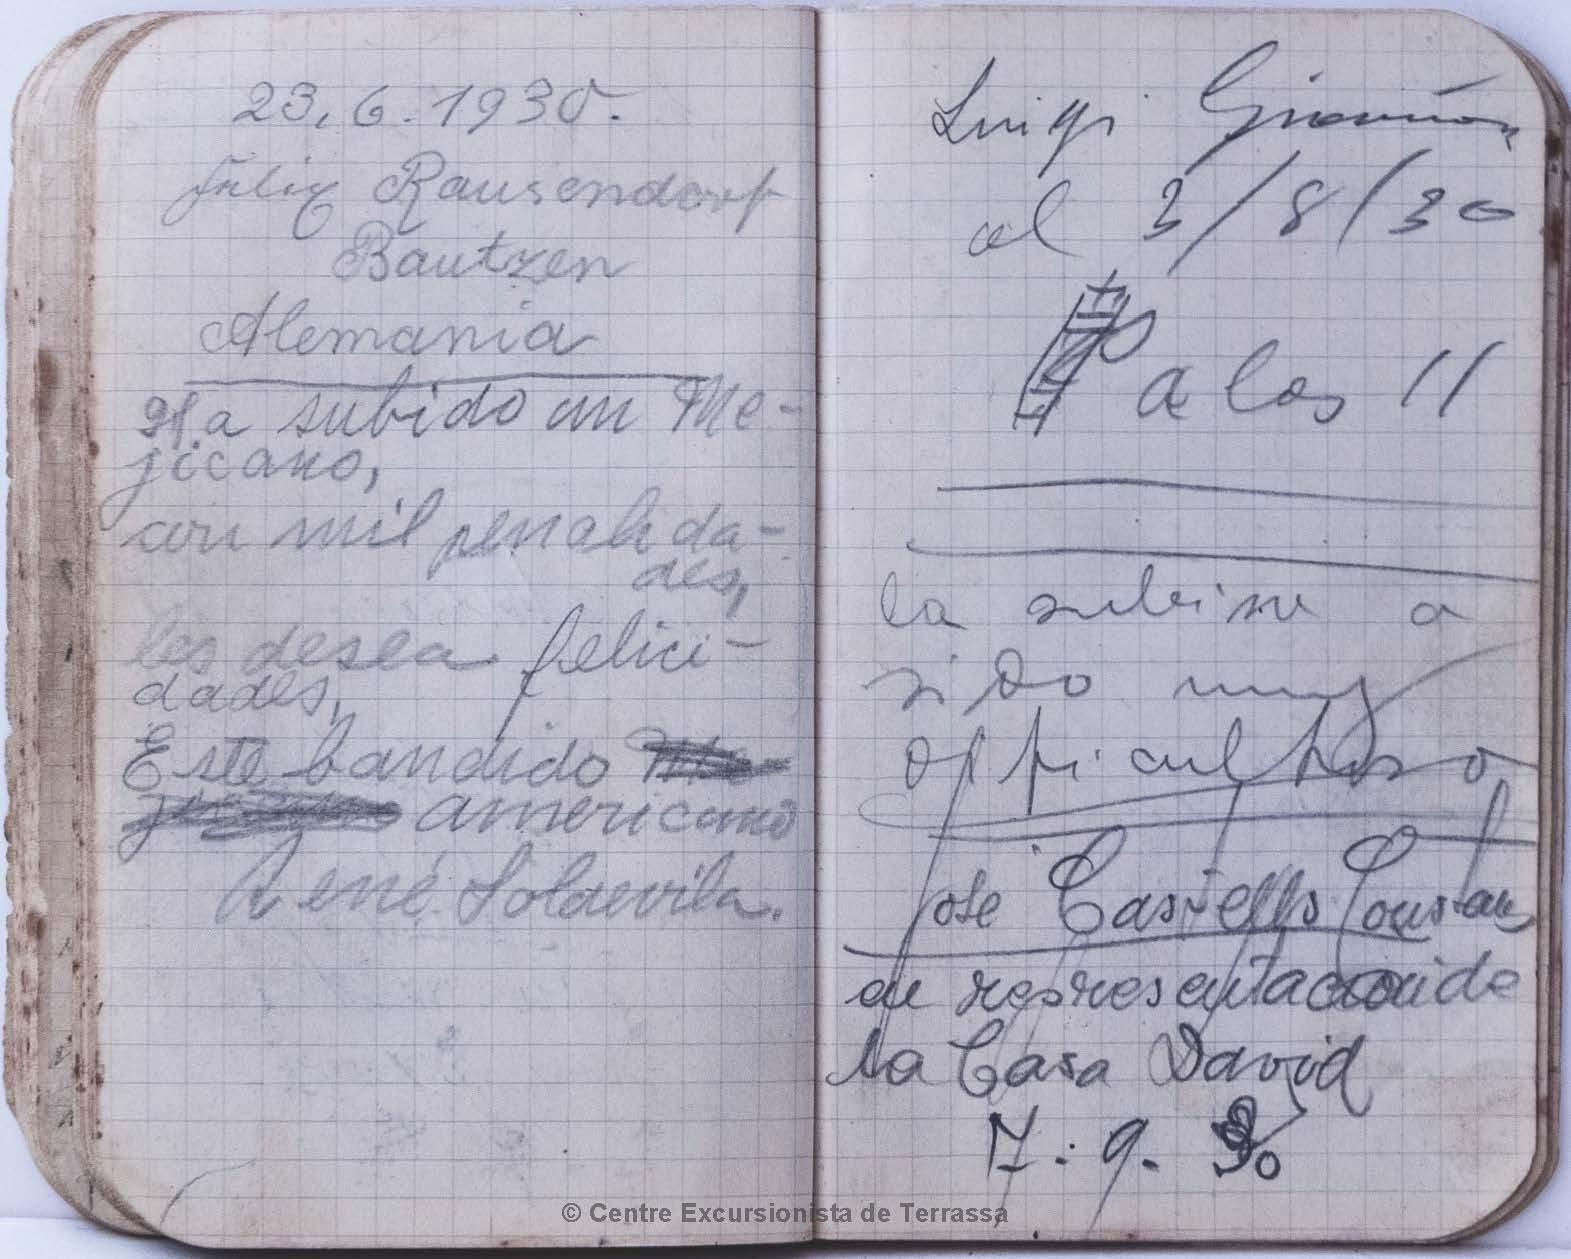 23.6.1930.
Felix Rausendorf
Bautzen
Alemania
Ha subido un Me-
jicano,
con mil penalida-
des,
les desea felici-
dades,
Este bandido
americano
René Soldevila.
Luigi
al 3/8/30
a las 11
la subine a
sido muy
offi cultoso
José Castells
en representacion de
la Casa David
7.9.30
© Centre Excursionista de Terrassa